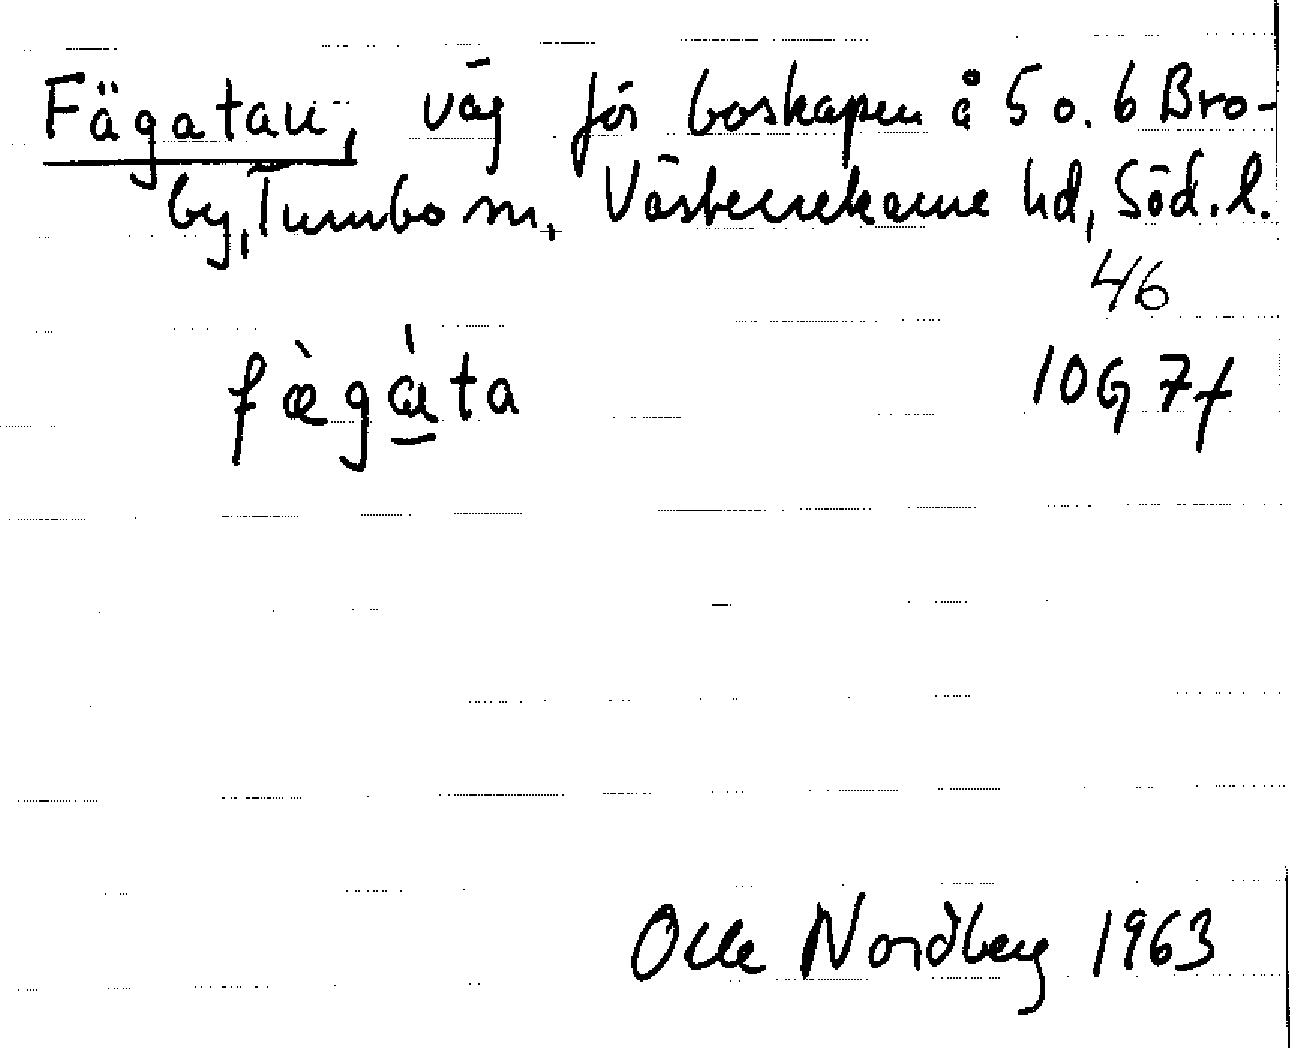 Fägatan, väg för boskapen å 5 o. 6 Bro-
by, Tumbo sn, Västerrekarne hd, Söd. l.
46
fæ̀gáta 10G 7f
Olle Nordberg 1963